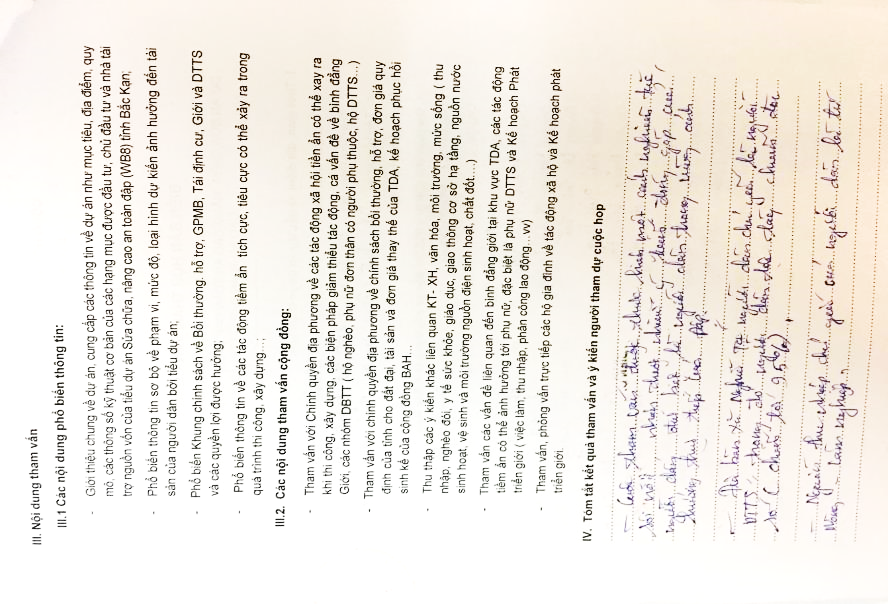 III. Nội dung tham vấn
III.1 Các nội dung phổ biến thông tin:
- Giới thiệu chung về dự án, cung cấp các thông tin về dự án như mục tiêu, địa điểm, quy
mô, các thông số kỹ thuật cơ bản của các hạng mục được đầu tư, chủ đầu tư và nhà tài
trợ nguồn vốn của tiểu dự án Sửa chữa, nâng cao an toàn đập (WB8) tỉnh Bắc Kạn;
- Phổ biến thông tin sơ bộ về phạm vi, mức độ, loại hình dự kiến ảnh hưởng đến tài
sản của người dân bởi tiểu dự án;
- Phổ biến Khung chính sách về Bồi thường, hỗ trợ, GPMB, Tái định cư, Giới và DTTS
và các quyền lợi được hưởng;
- Phổ biến thông tin về các tác động tiềm ẩn tích cực, tiêu cực có thể xảy ra trong
quá trình thi công, xây dựng...;
III.2. Các nội dung tham vấn cộng đồng:
- Tham vấn với Chính quyền địa phương về các tác động xã hội tiền ẩn có thể xay ra
khi thi công, xây dựng, các biện pháp giảm thiểu tác động, cá vấn đề về bình đẳng
Giới, các nhóm DBTT ( hộ nghèo, phụ nữ đơn thân có người phụ thuộc, hộ DTTS...)
- Tham vấn với chính quyền địa phương về chính sách bồi thường, hỗ trợ, đơn giá quy
định của tỉnh cho đất đai, tài sản và đơn giá thay thế của TDA, kế hoạch phục hồi
sinh kế của cộng đồng BAH...
- Thu thập các ý kiến khác liên quan KT- XH, văn hóa, môi trường, mức sống ( thu
nhập, nghèo đói, y tế sức khỏe, giáo dục, giao thông cơ sở hạ tầng, nguồn nước
sinh hoạt, vệ sinh và môi trường nguồn điện sinh hoạt, chất đốt....)
- Tham vấn các vấn đề liên quan đến bình đẳng giới tại khu vực TDA, các tác động
tiềm ẩn có thể ảnh hưởng tới phụ nữ, đặc biệt là phụ nữ DTTS và Kế hoạch Phát
triển giới ( việc làm, thu nhập, phân công lao động...vv)
- Tham vấn, phỏng vấn trực tiếp các hộ gia đình về tác động xã hộ và Kế hoạch phát
triển giới.
IV. Tóm tắt kết quả tham vấn và ý kiến người tham dự cuộc họp
- Cuộc tham vấn được thực hiện một cách nghiêm túc
người dân trong vùng ảnh
- Địa bàn xã người dân chủ yếu là người
DTTS, trong đó người dân tộc Tày chiếm đa
số ( chiếm tới 95%)
- Nguồn thu nhập chủ yếu của người dân là từ
Nông - Lâm nghiệp